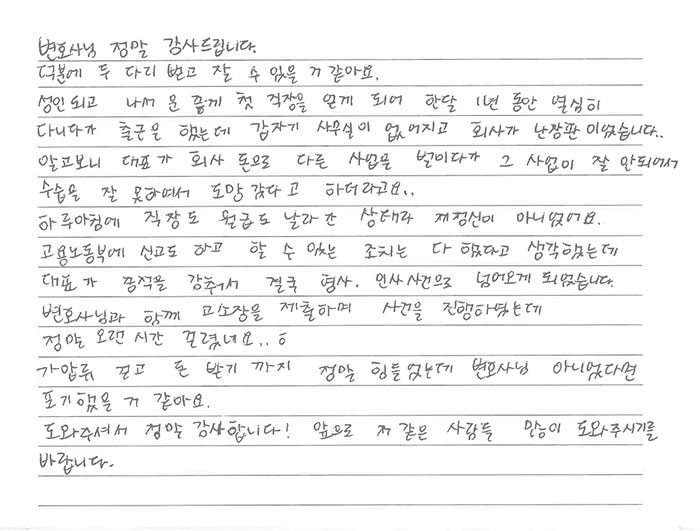 변호사님 정말 감사드립니다.
덕분에 두 다리 뻗고 잘 수 있을 거 같아요.
성인 되고 나서 운 좋게 첫 직장을 얻게 되어 한달 1년 동안 열심히
다니다가 출근을 했는데 갑자기 사무실이 없어지고 회사가 난장판이었습니다..
알고보니 대표가 회사 돈으로 다른 사업을 벌이다가 그 사업이 잘 안되어서
수습을 잘 못하여서 도망 갔다고 하더라고요..
하루아침에 직장도 월급도 날라간 상태라 제정신이 아니었어요.
고용노동부에 신고도 하고 할 수 있는 조치는 다 했다고 생각했는데
대표가 종적을 감춰서 결국 형사. 민사 사건으로 넘어오게 되었습니다.
변호사님과 함께 고소장을 제출하며 사건을 진행하였는데
정말 오랜 시간 걸렸네요..ㅎ
가압류 걸고 돈 받기 까지 정말 힘들었는데 변호사님 아니었다면
포기했을 거 같아요.
도와주셔서 정말 감사합니다! 앞으로 저 같은 사람들 많이 도와주시기를
바랍니다.